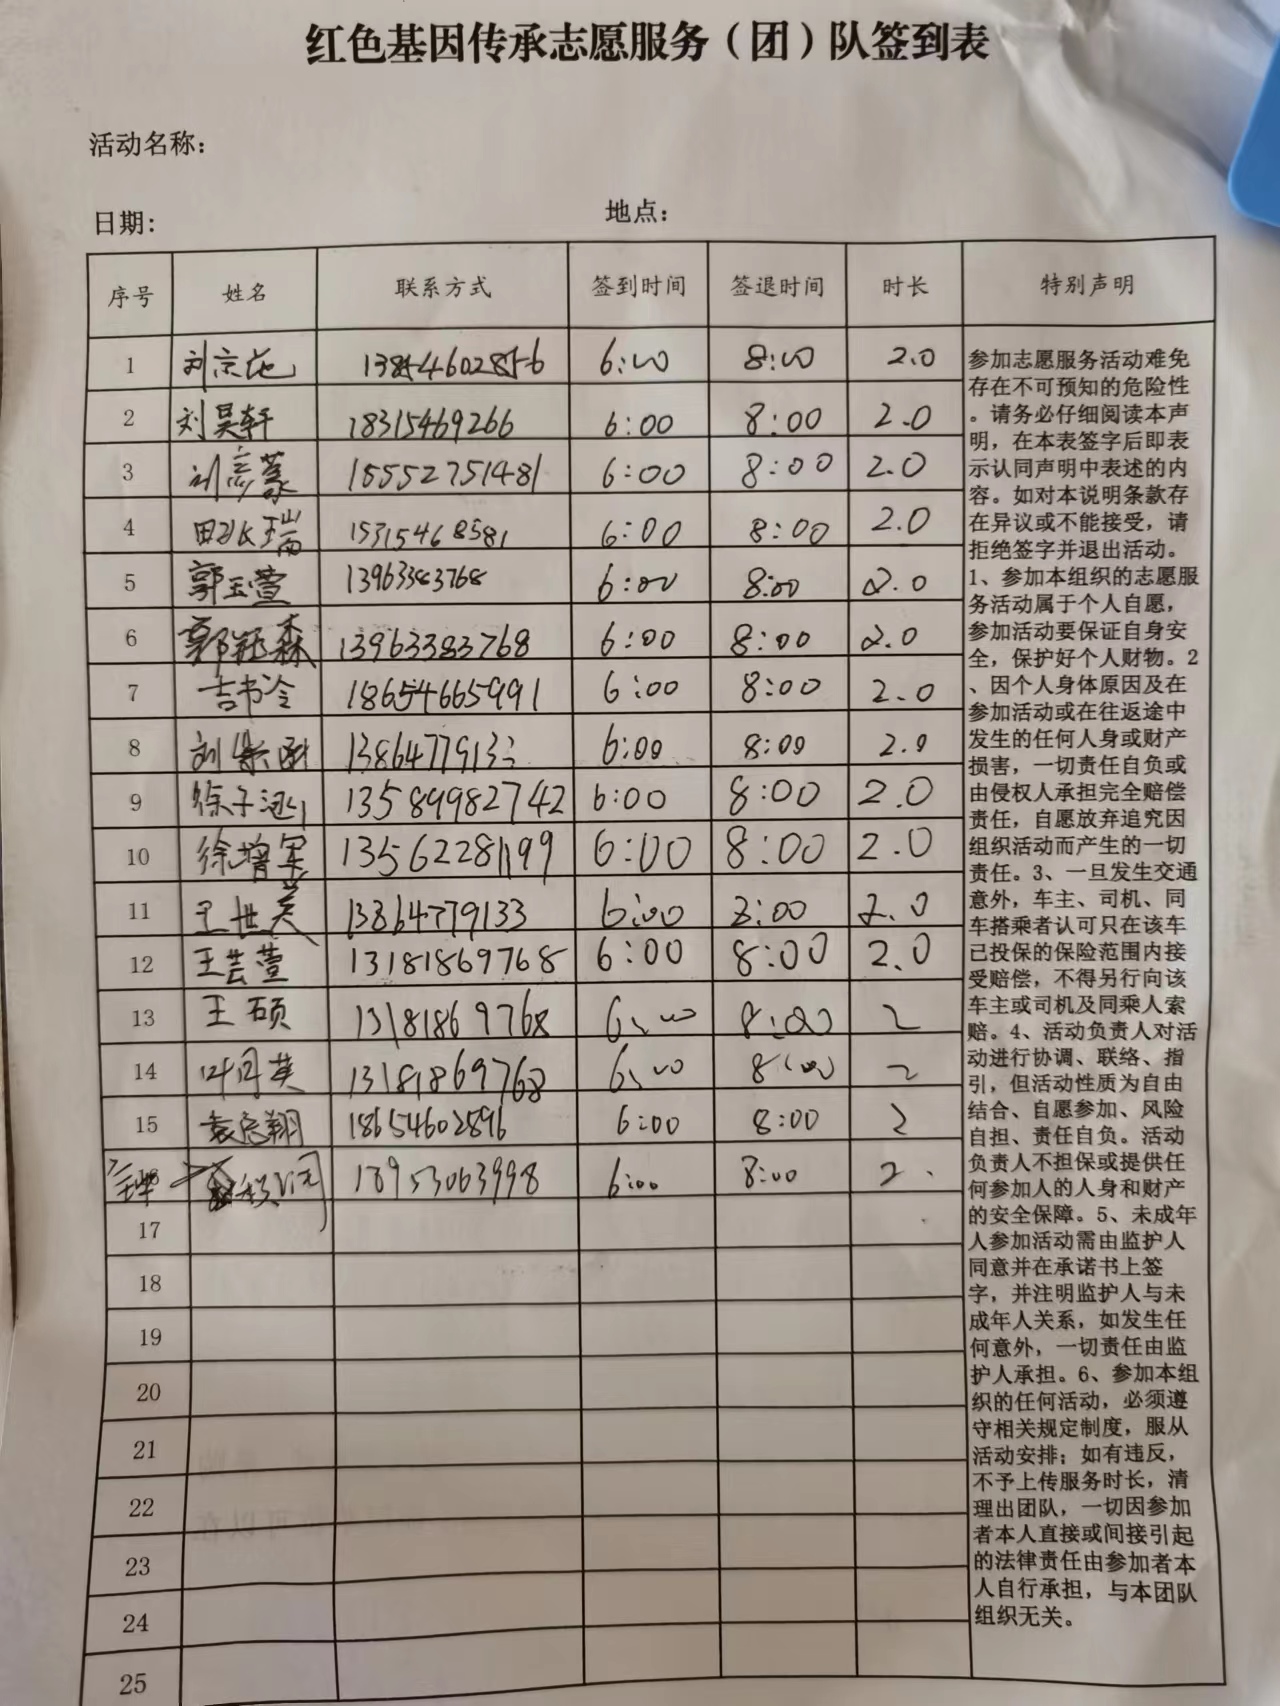 红色基因传承志愿服务（团）队签到表
活动名称：
日期： 地点：
序号 姓名 联系方式 签到时间 签退时间 时长 特别声明
1 13854602856 6:00 8:00 2.0
2 刘昊轩 18315469266 6:00 8:00 2.0
3 15552751481 6:00 8:00 2.0
4 15315468581 6:00 8:00 2.0
5 郭玉萱 13963383768 6:00 8:00 2.0
6 13963383768 6:00 8:00 2.0
7 吉书冷 18654665991 6:00 8:00 2.0
8 13864779133 6:00 8:00 2.0
9 13589982742 6:00 8:00 2.0
10 徐增军 13562281199 6:00 8:00 2.0
11 王世英 13864779133 6:00 8:00 2.0
12 王芸萱 13181869768 6:00 8:00 2.0
13 王硕 13181869768 6:00 8:00 2
14 叶丹英 13181869768 6:00 8:00 2
15 18654602896 6:00 8:00 2
16 18953063998 6:00 8:00 2.
17
18
19
20
21
22
23
24
25
参加志愿服务活动难免
存在不可预知的危险性
。请务必仔细阅读本声
明，在本表签字后即表
示认同声明中表述的内
容。如对本说明条款存
在异议或不能接受，请
拒绝签字并退出活动。
1、参加本组织的志愿服
务活动属于个人自愿，
参加活动要保证自身安
全，保护好个人财物。2
、因个人身体原因及在
参加活动或在往返途中
发生的任何人身或财产
损害，一切责任自负或
由侵权人承担完全赔偿
责任，自愿放弃追究因
组织活动而产生的一切
责任。3、一旦发生交通
意外，车主、司机、同
车搭乘者认可只在该车
已投保的保险范围内接
受赔偿，不得另行向该
车主或司机及同乘人索
赔。4、活动负责人对活
动进行协调、联络、指
引，但活动性质为自由
结合、自愿参加、风险
自担、责任自负。活动
负责人不担保或提供任
何参加人的人身和财产
的安全保障。5、未成年
人参加活动需由监护人
同意并在承诺书上签
字，并注明监护人与未
成年人关系，如发生任
何意外，一切责任由监
护人承担。6、参加本组
织的任何活动，必须遵
守相关规定制度，服从
活动安排；如有违反，
不予上传服务时长，清
理出团队，一切因参加
者本人直接或间接引起
的法律责任由参加者本
人自行承担，与本团队
组织无关。